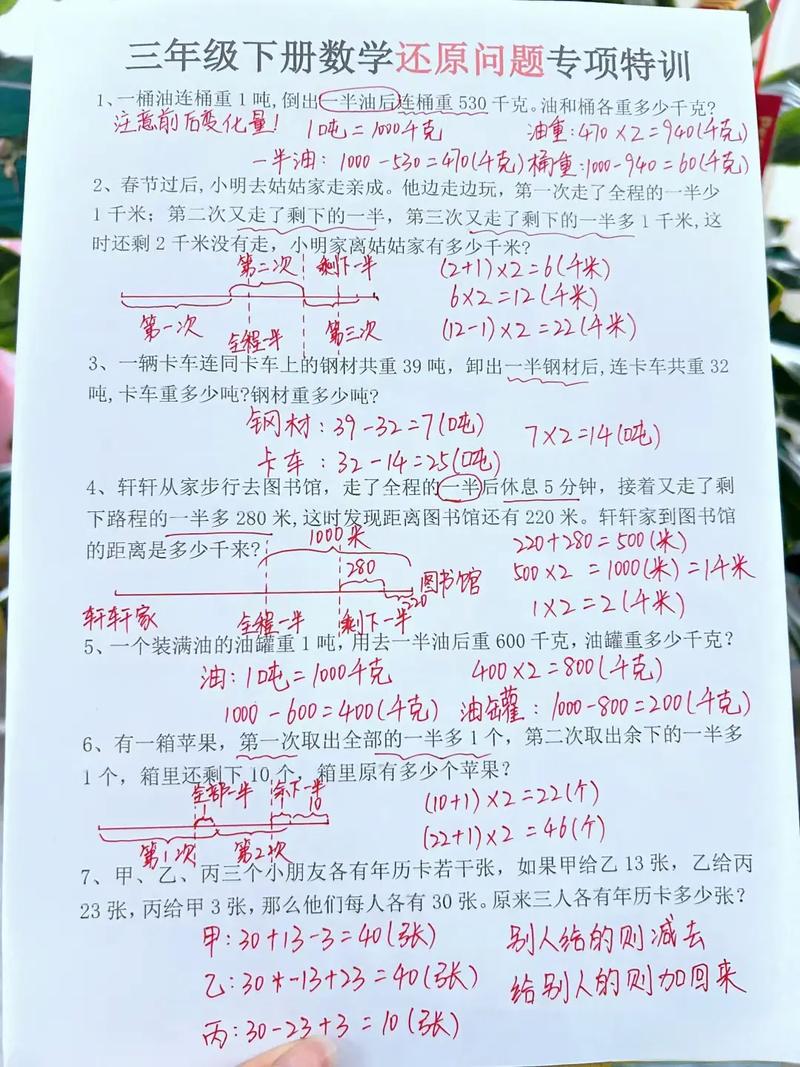 三年级下册数学还原问题专项特训
1、一桶油连桶重1吨,倒出一半油后连桶重530千克。油和桶各重多少千克?
注意前后变化量! 1吨=1000千克 油重:470×2=940(千克)
一半油:1000-530=470(千克) 桶重:1000-940=60(千克)
2、春节过后,小明去姑姑家走亲成。他边走边玩,第一次走了全程的一半少
1千米;第二次又走了剩下的一半,第三次又走了剩下的一半多1千米,这
时还剩2千米没有走,小明家离姑姑家有多少千米?
第二次 剩下一半 (2+1)×2=6(千米)
6×2=12(千米)
第一次 全程一半 第三次 (12-1)×2=22(千米)
3、一辆卡车连同卡车上的钢材共重39吨,卸出一半钢材后,连卡车共重32
吨,卡车重多少吨?钢材重多少吨?
钢材:39-32=7(吨) 7×2=14(吨)
卡车:32-14=25(吨)
4、轩轩从家步行去图书馆,走了全程的一半后休息5分钟,接着又走了剩
下路程的一半多280米,这时发现距离图书馆还有220米。轩轩家到图书馆
的距离是多少千来?
1000米 220+280=500(米)
280 图书馆 500×2=1000(米)=1千米
220
轩轩家 全程一半 剩下一半 1×2=2(千米)
5、一个装满油的油罐重1吨,用去一半油后重600千克,油罐重多少千克?
油:1吨=1000千克 400×2=800(千克)
1000-600=400(千克) 油罐:1000-800=200(千克)
6、有一箱苹果,第一次取出全部的一半多1个,第二次取出余下的一半多
1个,箱里还剩下10个,箱里原有多少个苹果?
全部一半 余下一半 (10+1)×2=22(个)
1 10
第1次 第2次 (22+1)×2=46(个)
7、甲、乙、丙三个小朋友各有年历卡若干张,如果甲给乙13张,乙给丙
23张,丙给甲3张,那么他们每人各有30张。原来三人各有年历卡多少张?
甲:30+13-3=40(张) 别人给的则减去
乙:30-13+23=40(张) 给别人的则加回来
丙:30-23+3=10(张)